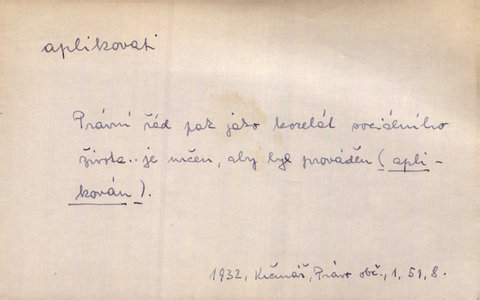 aplikovati
Právní řád pak jako korelát sociálního
života.. je určen, aby byl prováděn (apli-
kován).
1932, Krčmář, Právo obč., 1, 51, 8.